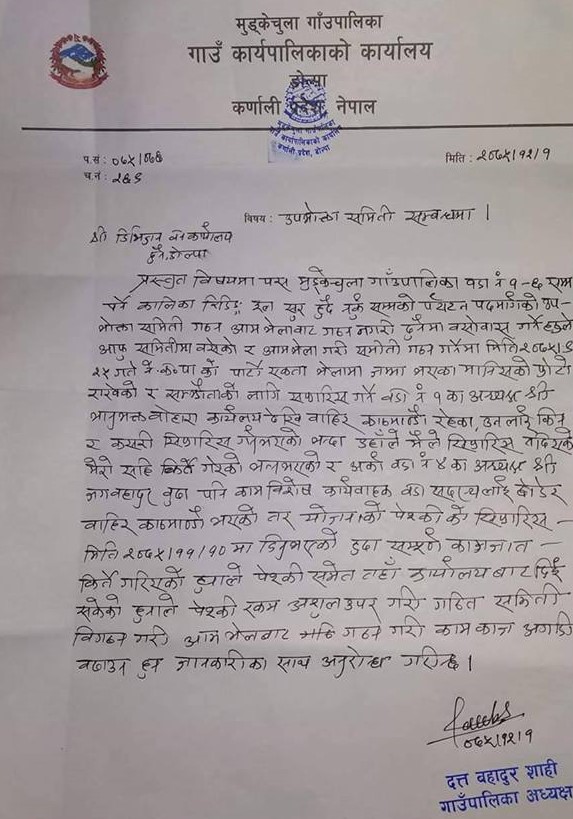 मुड्केचुला गाँउपालिका
गाउँ कार्यपालिकाको कार्यालय
डोल्पा
कर्णाली प्रदेश, नेपाल
मुड्केचुला गाँउपालिका
गाउँ कार्यपालिकाको कार्यालय
कर्णाली प्रदेश, डोल्पा
प.सं: ०७५/०७६
मिति: २०७५/१२/१
च.नं: २८६
विषय: उपभोक्ता समिति सम्बन्धमा ।
श्री डिभिजन वन कार्यालय
दुनै, डोल्पा
प्रस्तुत विषयमा यस मुड्केचुला गाँउपालिका वडा नं १-६ सम्म
कालिका हुदै सम्मको पर्यटन पदमार्गको उप-
भोक्ता समिति गठन आमभेलाबाट गठन नगरी दुनैमा बसोवास गर्ने
आफु समितिमा बसेको र आमभेला गरी समिती गठन गर्नेमा मिति २०७५
२५ गते ने.क.पा को पार्टी एकता भेलामा जम्मा भएका मानिसको फोटो
राखेको र सम्झौताको लागि सिफारिस गर्ने वडा नं १ का अध्यक्ष श्री
भानुभक्त बोहोरा कार्यलय देखि वाहिर काठमाण्डौ रहेका, उनलाई किन
र कसरी सिफारिस गर्नुभएको भन्दा उहाँले मैले सिफारिस
मेरो सहि किर्ते गरेको र अर्का वडा नं ४ का अध्यक्ष श्री
जगबहादुर बुढा पनि काम विशेष कार्यवाहक वडा सदस्यलाई छोडेर
वाहिर काठमाण्डौ भएको तर योजनाको पेश्की को सिफारिस -
मिति २०७५/११/१० मा दिनुभएको हुदा सम्पूर्ण कागजात -
किर्ते गरिएको हुनाले पेश्की समेत तहाँ कार्यालय बाट दिई
सकेको हुनाले पेश्की रकम असुल उपर गरी गठित समिती
विगठन गरी आमभेलाबाट गठन गरी काम काज अगाडी
वढाउन हुन जानकारीका साथ अनुरोध गरिन्छ ।
०७५/१२/१
दत्त वहादुर शाही
गाउँपालिका अध्यक्ष